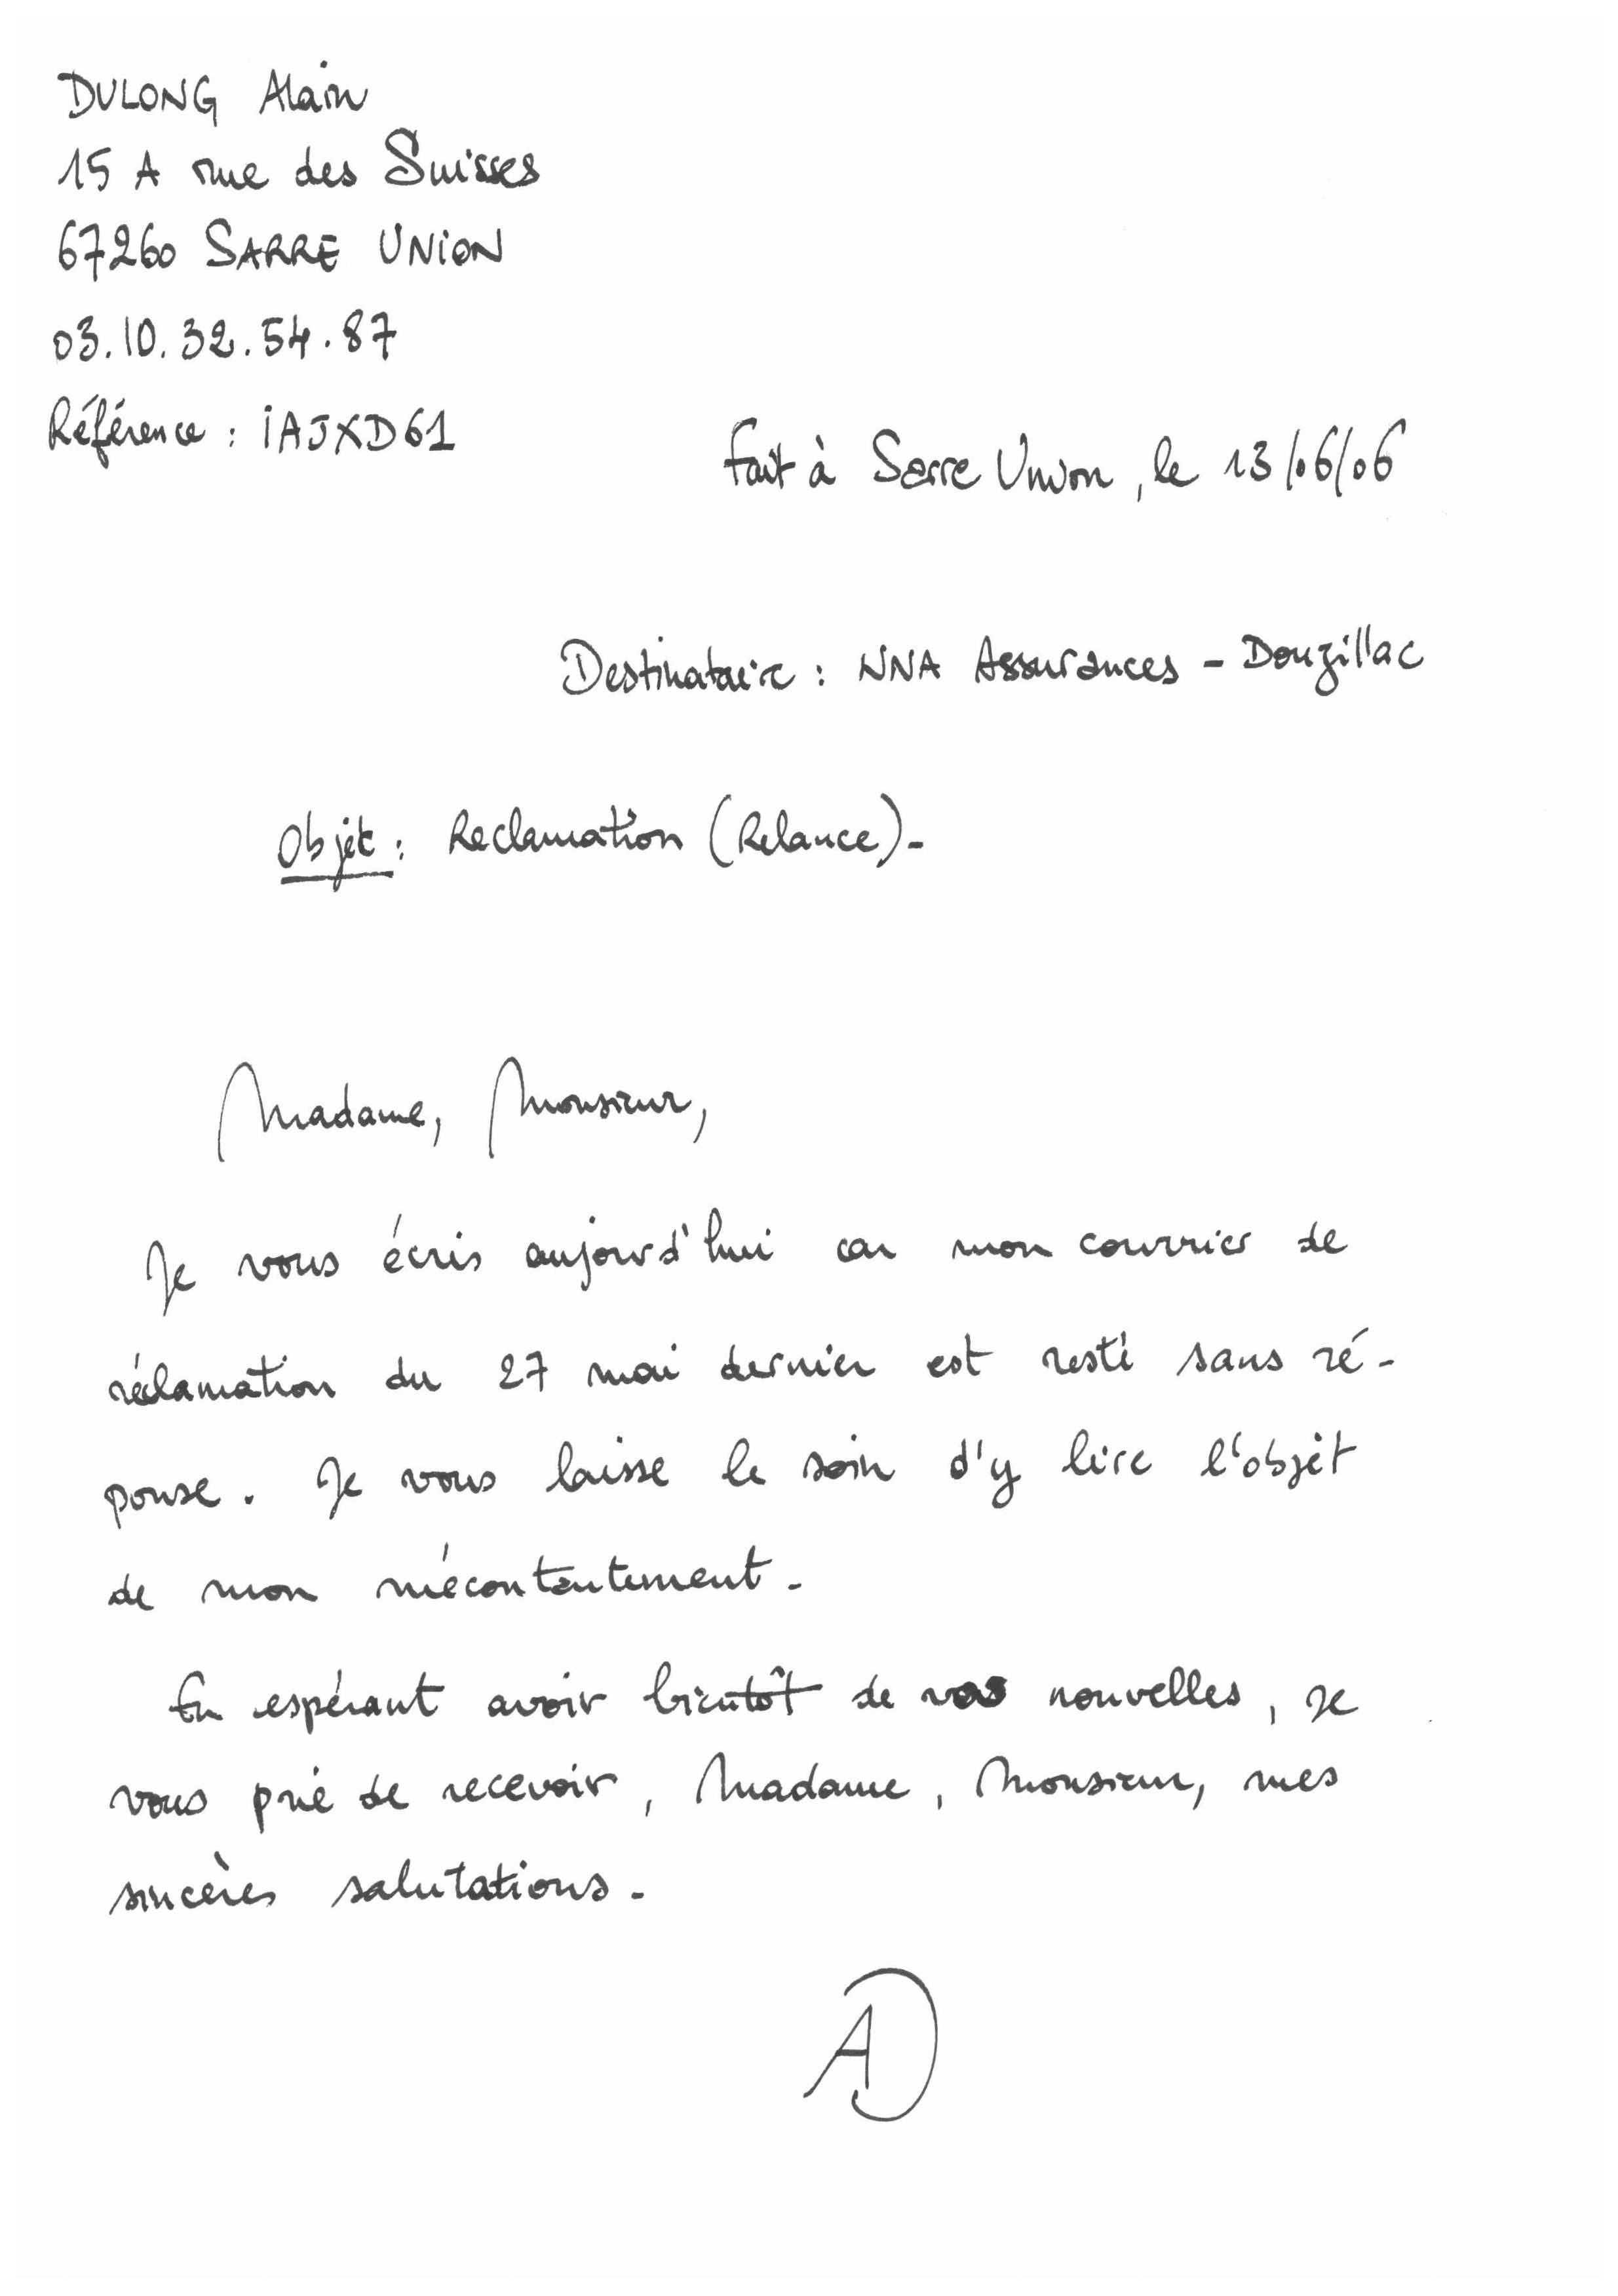 DULONG Alain
15 A rue des Suisses
67260 SARRE UNION
03.10.32.54.87
Référence : iAJXD61
Fait à Sarre Union, le 13/06/06
Destinataire : NNA Assurances - Douzillac
Objet : Reclamation (Relance)-
Madame, Monsieur,
Je vous écris aujourd'hui car mon courrier de
réclamation du 27 mai dernier est resté sans ré-
ponse. Je vous laisse le soin d'y lire l'objet
de mon mécontentement.
En espérant avoir bientôt de vos nouvelles, je
vous prie de recevoir, Madame, Monsieur, mes
sincères salutations.
AD